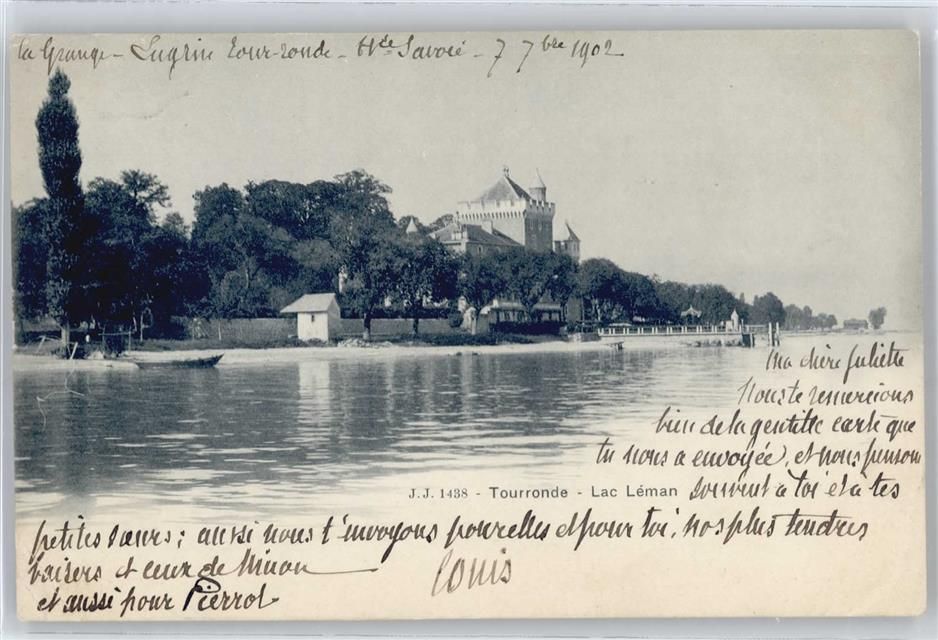 la Grange - Lugrin Tour-ronde - Hte Savoie - 7 7bre 1902
Ma chère Juliette
Nous te remercions
bien de la gentille carte que
tu nous a envoyée, et nous pensons
J.J. 1438 - Tourronde - Lac Léman
souvent à toi et à tes
petites sœurs; aussi nous t'envoyons pour elles et pour toi, nos plus tendres
baisers et ceux de Minon
Louis
et aussi pour Pierrot